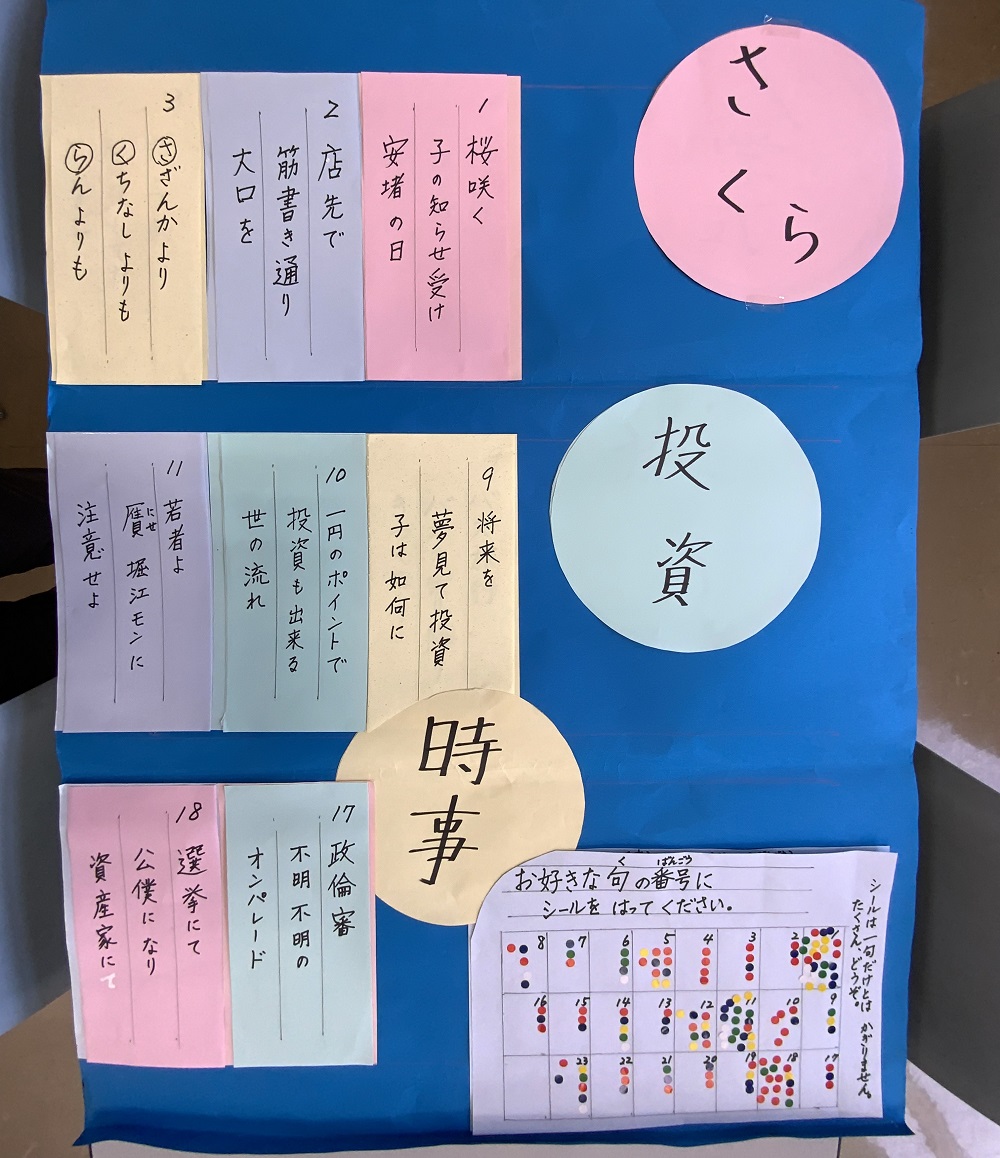 さくら
1 桜咲く
子の知らせ受け
安堵の日
2 店先で
筋書き通り
大口を
3 さざんかより
くちなしよりも
らんよりも
投資
9 将来を
夢見て投資
子は如何に
10 一円のポイントで
投資も出来る
世の流れ
11 若者よ
贋 堀江モンに
にせ
注意せよ
時事
17 政倫審
不明不明の
オンパレード
18 選挙にて
公僕になり
資産家にて
お好きな句の番号に
く ばんごう
シールをはってください。
シールは一句だけとは かぎりません。
たくさん、どうぞ。
8 7 6 5 4 3 2 1
16 15 14 13 12 11 10 9
23 22 21 20 19 18 17